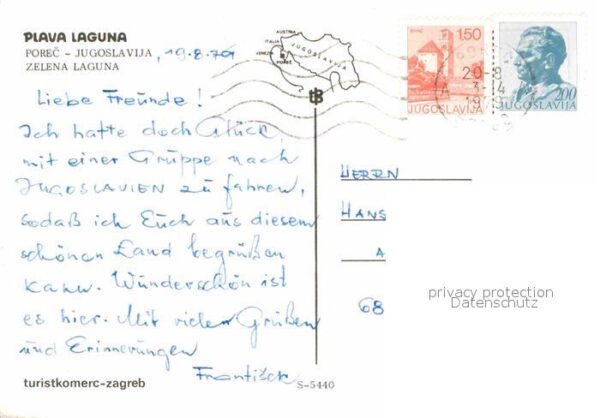 PLAVA LAGUNA
POREČ – JUGOSLAVIJA, 19.8.79
ZELENA LAGUNA
Liebe Freunde!
Ich hatte doch Glück,
mit einer Gruppe nach
JUGOSLAVIEN zu fahren,
sodaß ich Euch aus diesem
schönen Land begrüßen
kann. Wunderschön ist
es hier. Mit vielen Grüßen
und Erinnerungen
František
turistkomerc-zagreb
S-5440
AUSTRIA
ITALIA
VENEZIA
POREČ
JUGOSLAVIJA
1.50
JUGOSLAVIJA
2.00
JUGOSLAVIJA
20-8
HERRN
HANS
A
68
privacy protection
Datenschutz